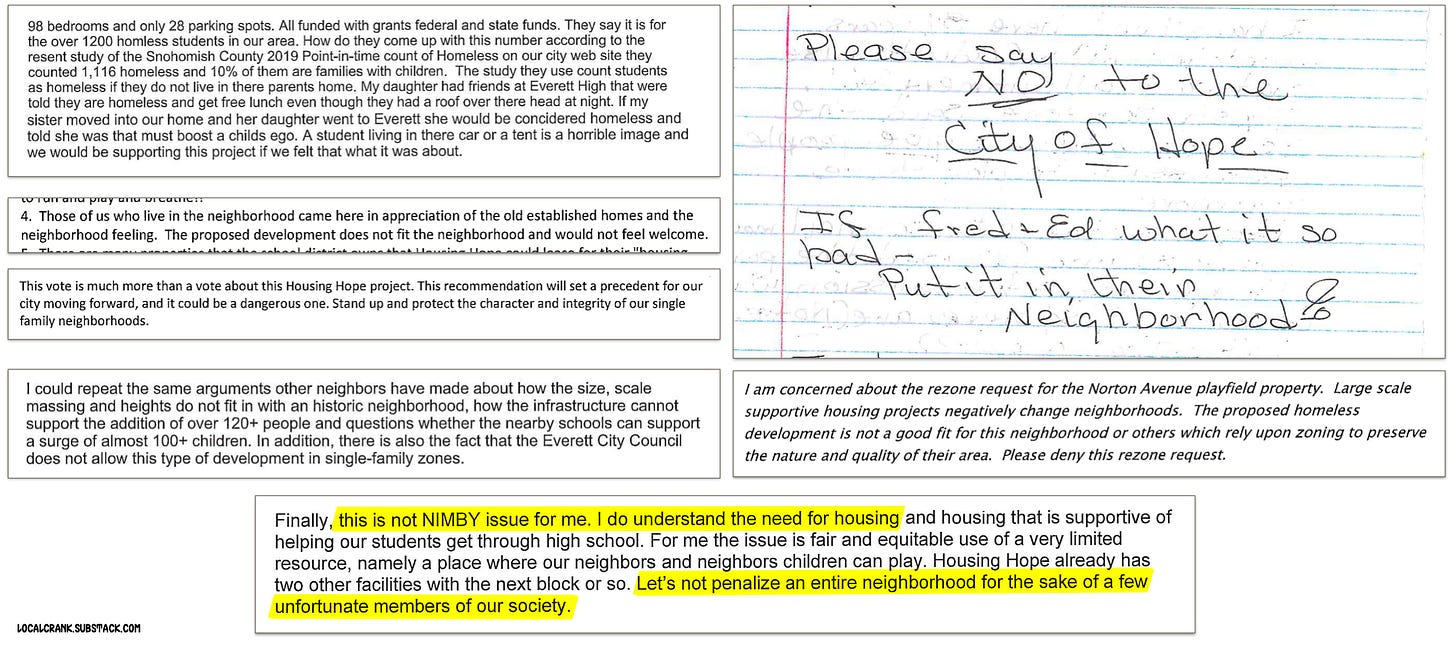 98 bedrooms and only 28 parking spots. All funded with grants federal and state funds. They say it is for
the over 1200 homless students in our area. How do they come up with this number according to the
resent study of the Snohomish County 2019 Point-in-time count of Homeless on our city web site they
counted 1,116 homeless and 10% of them are families with children. The study they use count students
as homeless if they do not live in there parents home. My daughter had friends at Everett High that were
told they are homeless and get free lunch even though they had a roof over there head at night. If my
sister moved into our home and her daughter went to Everett she would be concidered homeless and
told she was that must boost a childs ego. A student living in there car or a tent is a horrible image and
we would be supporting this project if we felt that what it was about.
to run and play and breathe!!
4. Those of us who live in the neighborhood came here in appreciation of the old established homes and the
neighborhood feeling. The proposed development does not fit the neighborhood and would not feel welcome.
5. There are many properties that the school district owns that Housing Hope could lease for their "housing
This vote is much more than a vote about this Housing Hope project. This recommendation will set a precedent for our
city moving forward, and it could be a dangerous one. Stand up and protect the character and integrity of our single
family neighborhoods.
I could repeat the same arguments other neighbors have made about how the size, scale
massing and heights do not fit in with an historic neighborhood, how the infrastructure cannot
support the addition of over 120+ people and questions whether the nearby schools can support
a surge of almost 100+ children. In addition, there is also the fact that the Everett City Council
does not allow this type of development in single-family zones.
Please say
NO to the
City of Hope
If fred & Ed what it so
bad -
Put it in their
Neighborhood
I am concerned about the rezone request for the Norton Avenue playfield property. Large scale
supportive housing projects negatively change neighborhoods. The proposed homeless
development is not a good fit for this neighborhood or others which rely upon zoning to preserve
the nature and quality of their area. Please deny this rezone request.
Finally, this is not NIMBY issue for me. I do understand the need for housing and housing that is supportive of
helping our students get through high school. For me the issue is fair and equitable use of a very limited
resource, namely a place where our neighbors and neighbors children can play. Housing Hope already has
two other facilities with the next block or so. Let's not penalize an entire neighborhood for the sake of a few
unfortunate members of our society.
LOCALCRANK.SUBSTACK.COM